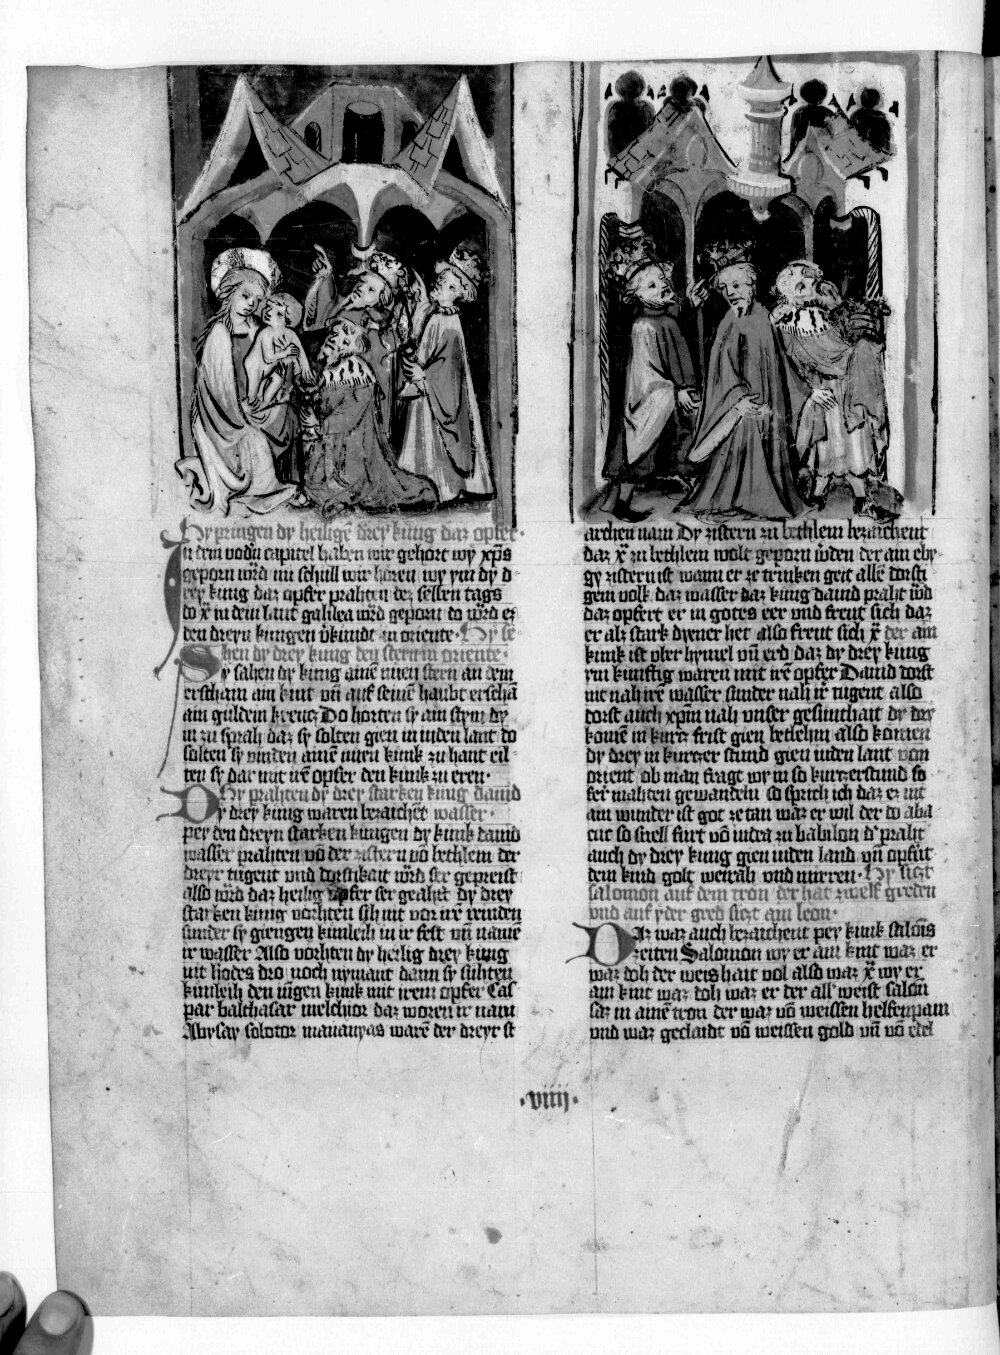 Hy pringen dy heiligē drey kung daz opfer.
In dem vodn̄ capitel haben wir gehort wy xp̄s
geporn wͦrd nu schull wir horen wy ym dy d
rey kung daz opfer prahten dez selben tags
do xͦ in dem lant galilea wͦrd geporn do wͦrd ez
den dreyn kungen v̓kundt in oriente. Hy se
Shen dy drey kung den stern in oriente.
Sy sahen dy kung ainē nuen stern an dem
erscham ain kint vn̄ auf seinē haubt erschā
ain guldein kreucz Do horten sy ain stym dy
in zu sprah daz sy solten gien in iuden lant do
solten sy vinden ainē nuen kunk zu hant eil
ten sy dar mit irē opfer den kunk zu eren.
Dy prahten dy drey starken kung dauid
Dy drey kung waren bezaichēt wasser.
per den dreyn starken kungen dy kunk dauid
wasser prahten vō der zistern vō bethlem der
dreyr tugent vnd dorstikait wͦrd ser gepreist
also wͦrd daz heilig opfer ser geahtet dy drey
starken kung vorhten sih nit vor irē veinden
sunder sy giengen kunleih in ir fest vn̄ namē
ir wasser Also vorhten dy heilig drey kung
nit hodes dro noch nymant dann sy suhten
kunleih den iūgen kunk mit irem opfer Cas
par balthasar melchior daz woren ir nam
Abysay sobotor mananyas warē der dreyr st
archen nam Dy zistern zu bethlem bezaichent
daz xͦ zu bethlem wolt geporn wͦden der ain eby
gy zistern ist wann er ze trinken geit allē dorsti
gem volk daz wasser daz kung dauid praht wͦd
daz opfert er in gotes eer vnd freut sich daz
er alz stark dyener het also freut sich xͦ der ain
kunk ist vber hymel vn̄ erd daz dy drey kung
ym kunftig waren mit irē opfer Dauid dorst
nit nah irē wasser sunder nah ir tugent also
dorst auch xp̄m nah vnser gesunthait dy drey
komē in kurcz frist gien betlehm also komen
dy drey in kurczer stund gien iuden lant von
orient ob man fragt wy in so kurczer stund so
fer mahten gewandeln so sprich ich daz ez mit
ain wunder ist got ze tan waz er wil der do aba
cut so snell furt vō iudea zu babilon d̓ praht
auch dy drey kung gien iuden land vn̄ opfūt
dem kind golt weirah vnd mirren. Hy siczt
salomon auf dem tron der hat zwelf greden
vnd auf yder gred siczt ain leon.
Daz waz auch bezaichent pey kunk salōis
zeiten Salomon wy er ain kint waz er
waz doh der weishait vol also waz xͦ wy er
ain kint waz doh waz er der all weist salōn
saz in ainē tron der waz vō weissen helfenpain
vnd waz geclaidt vō weissen gold vn̄ vō edel
.viiij.